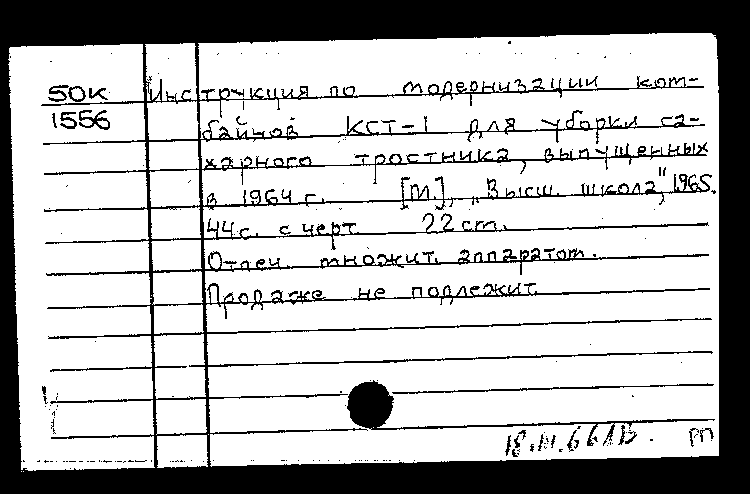 50К Инструкция по модернизации ком-
1556 байнов КСТ-1 для уборки са-
харного тростника, выпущенных
в 1964 г. [М.], „Высш. школа", 1965.
44 с. с черт. 22 см.
Отпеч. множит. аппаратом.
Продаже не подлежит.
РП